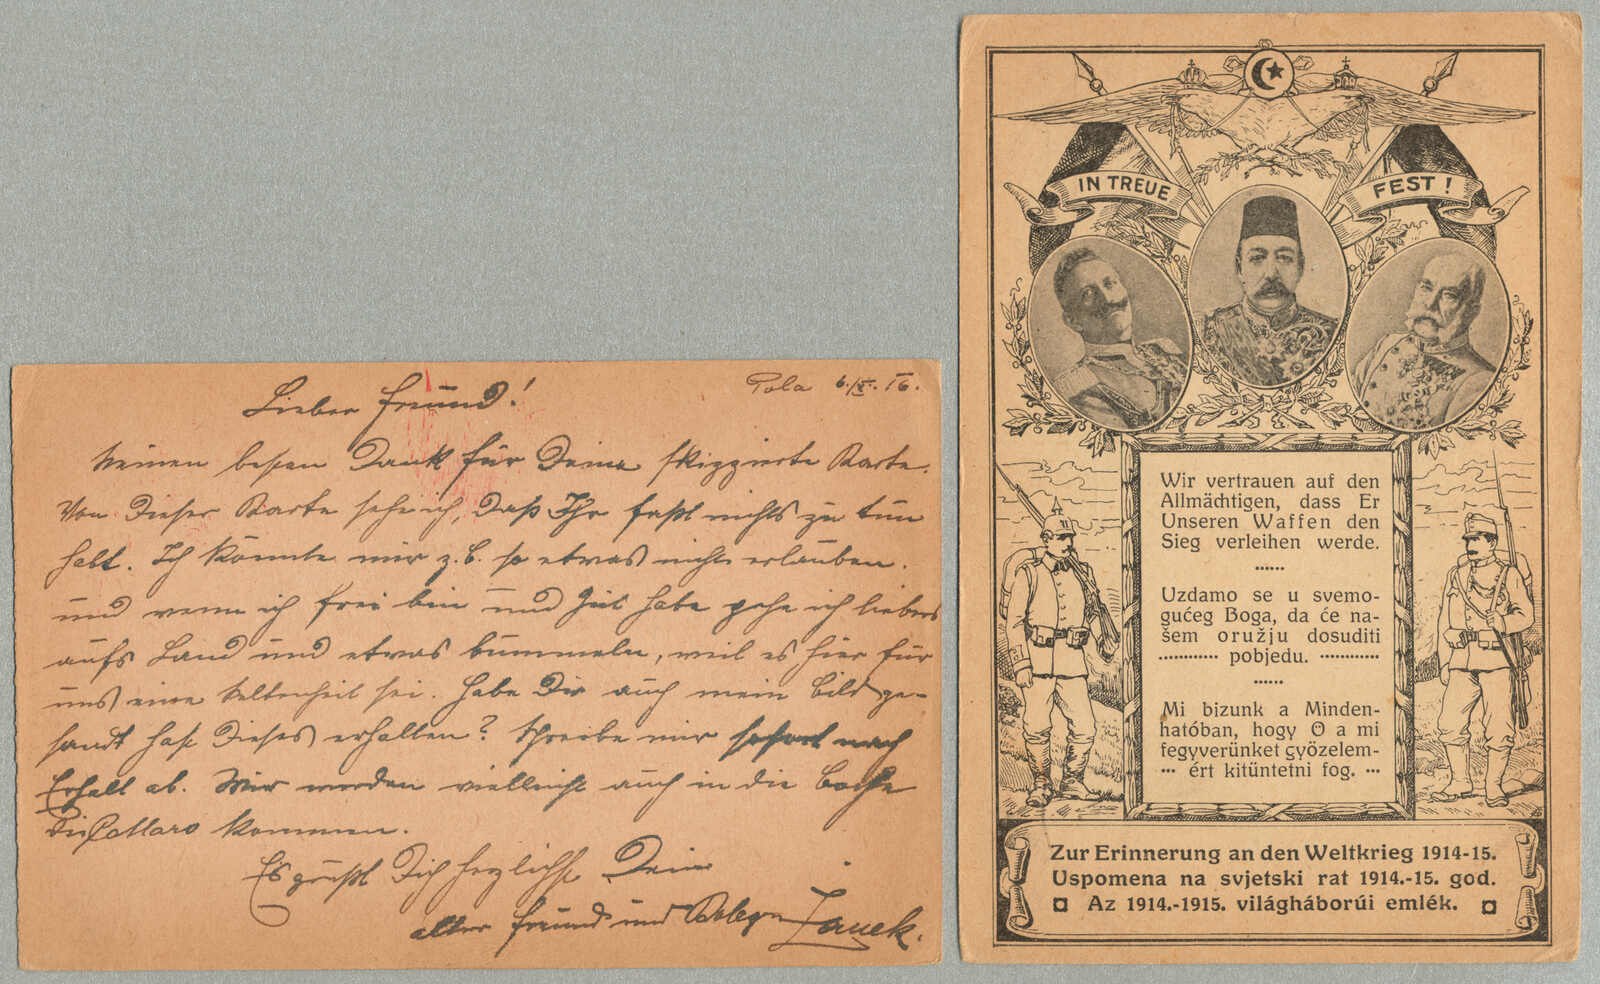 Pola 6./X. 16.
Lieber Freund!
Meinen besten Dank für Deine skizzierte Karte.
Von dieser Karte sehe ich, daß Ihr fast nichts zu tun
habt. Ich könnte mir z.b. so etwas nicht erlauben.
und wenn ich frei bin und Zeit habe gehe ich liebers
aufs Land und etwas bummeln, weil es hier für
uns eine Seltenheit sei. Habe Dir auch mein Bild ge-
sandt hast Dieses erhalten? Schreibe mir sofort nach
Erhalt ab. Wir werden vielleicht auch in die Bocche
di Cattaro kommen.
Es grüßt Dich herzlichst Dein
alter Freund und Kollege
IN TREUE FEST!
Wir vertrauen auf den
Allmächtigen, dass Er
Unseren Waffen den
Sieg verleihen werde.
Uzdamo se u svemo-
gućeg Boga, da će na-
šem oružju dosuditi
pobjedu.
Mi bizunk a Minden-
hatóban, hogy O a mi
fegyverünket gyözelem-
ért kitüntetni fog.
Zur Erinnerung an den Weltkrieg 1914-15.
Uspomena na svjetski rat 1914.-15. god.
Az 1914.-1915. világháborúi emlék.